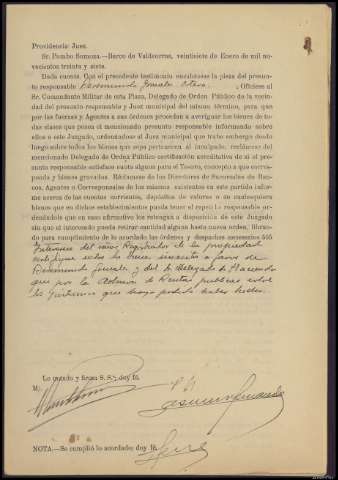 Providencia: Juez.
Sr. Pombo Somoza.—Barco de Valdeorras, veintisiete de Enero de mil no-
vecientos treinta y siete.
Dada cuenta. Con el precedente testimonio encabécese la pieza del presun-
to responsable
; Oficiese al
Sr. Comandante Militar de esta Plaza, Delegado de Orden Público de la vecin-
dad del presunto responsable y Juez municipal del mismo término, para que
por las fuerzas y Agentes a sus órdenes procedan a averiguar los bienes de to-
das clases que posea el mencionado presunto responsable informando sobre
ellos a este Juzgado, ordenándose al Juez municipal que trabe embargo desde
luego sobre todos los bienes que sepa pertenezcan al inculpado, recábese del
mencionado Delegado de Orden Público certificación acreditativa de si el pre-
sunto responsable satisface cuota alguna para el Tesoro, concepto a que corres-
ponda y bienes gravados. Recábense de los Directores de Sucursales de Ban-
cos, Agentes o Corresponsales de los mismos existentes en este partido infor-
me acerca de las cuentas corrientes, depósitos de valores o de cualesquiera
bienes que en dichos establecimientos pueda tener el repetido responsable or-
denándole que en caso afirmativo los retengan a disposición de este Juzgado
sin que el interesado pueda retirar cantidad alguna hasta nueva orden, libran-
do para cumplimiento de lo acordado las órdenes y despachos necesarios
del señor Registrador de la propiedad
sobre los bienes inscritos a favor de
y del Sr Delegado de Hacienda
que por la
que haya podido haber hecho.
Lo mandó y firma S. S.ª; doy fé.
NOTA.—Se cumplió lo acordado; doy fé.